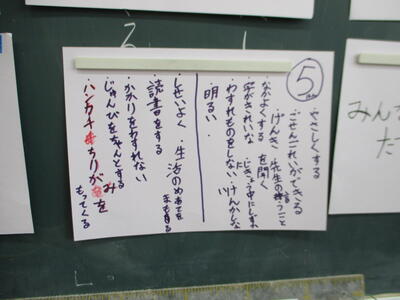 ⑤
・やさしくする
・ごせんこれいができる
・げんき ・先生の言うことを聞く
・なかよくする
・字がきれいな ・じぎょう中にしずか
・わすれものをしない ・けんかしない
・明るい
・しせいよく ・生活のめあてをまもる
・読書をする
・かかりをわすれない
・じゅんびをちゃんとする
・ハンカチちりがみをもってくる
みん
た